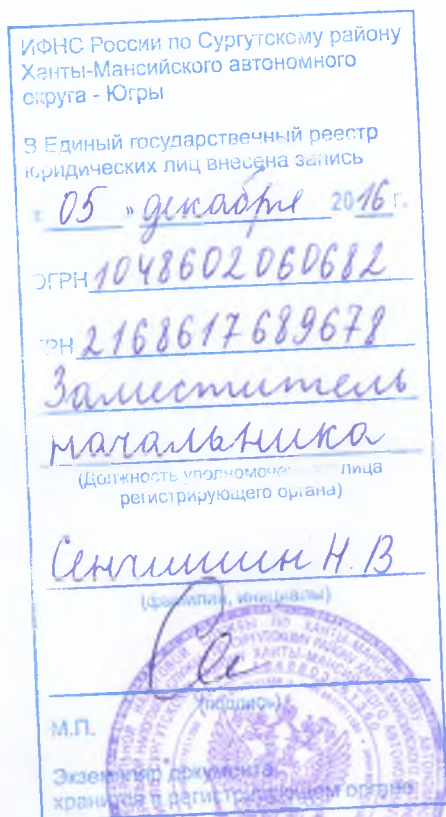 ИФНС России по Сургутскому району
Ханты-Мансийского автономного
округа - Югры
В Единый государственный реестр
юридических лиц внесена запись
« 05 » декабря 2016 г.
ОГРН 1048602060682
ГРН 2168617689678
Заместитель
начальника
(Должность уполномоченного лица
регистрирующего органа)
Сенчишин Н.В
(фамилия, инициалы)
(подпись)
М.П.
Экземпляр документа
хранится в регистрирующем органе